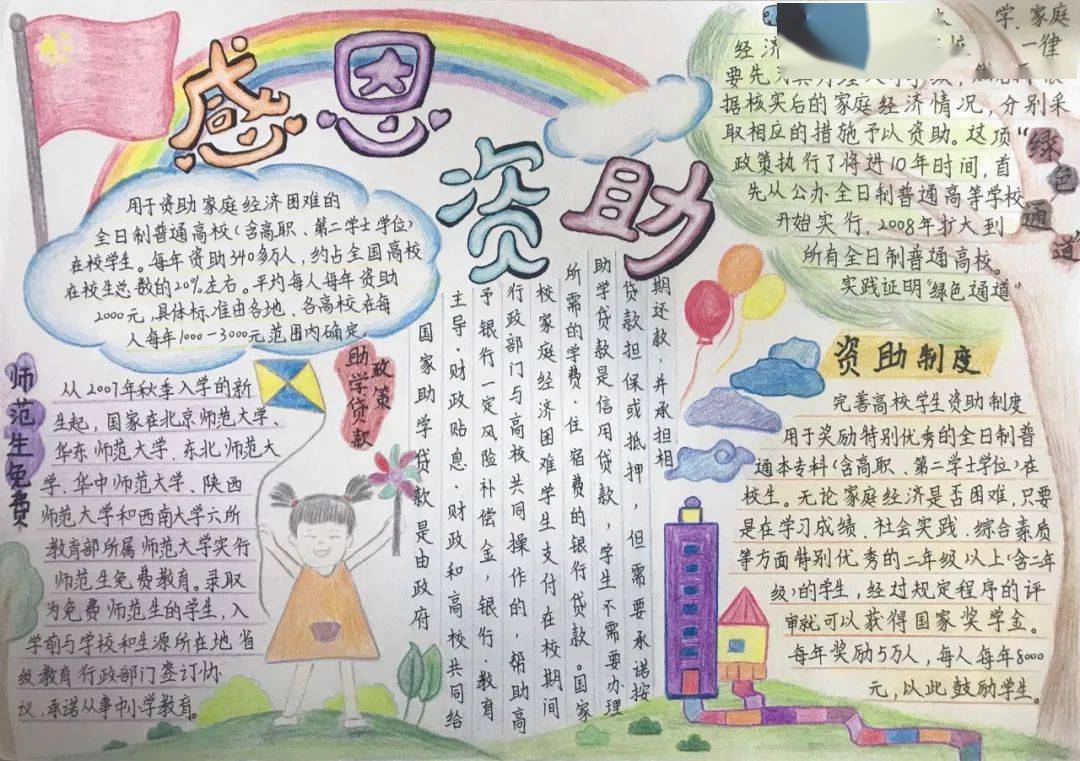 感恩
资助
用于资助家庭经济困难的
全日制普通高校(含高职、第二学士学位)
在校学生。每年资助340多万人,约占全国高校
在校生总数的20%左右。平均每人每年资助
2000元,具体标准由各地、各高校在每
人每年1000—3000元范围内确定。
师范生免费
从2007年秋季入学的新
生起,国家在北京师范大学、
华东师范大学、东北师范大
学、华中师范大学、陕西
师范大学和西南大学六所
教育部所属师范大学实行
师范生免费教育。录取
为免费师范生的学生,入
学前与学校和生源所在地省
级教育行政部门签订协
议,承诺从事中小学教育。
助学贷款
政策
国家助学贷款是由政府
主导、财政贴息、财政和高校共同给
予银行一定风险补偿金,银行、教育
行政部门与高校共同操作的,帮助高
校家庭经济困难学生支付在校期间
所需的学费、住宿费的银行贷款。国家
助学贷款是信用贷款,学生不需要办理
贷款担保或抵押,但需要承诺按
期还款,并承担相
学、家庭
经济 一律
要先
据核实后的家庭经济情况,分别采
取相应的措施予以资助。这项
政策执行了将进10年时间,首
先从公办全日制普通高等学校
开始实行,2008年扩大到
所有全日制普通高校。
实践证明“绿色通道”
“绿色通道”
资助制度
完善高校学生资助制度
用于奖励特别优秀的全日制普
通本专科(含高职、第二学士学位)在
校生。无论家庭经济是否困难,只要
是在学习成绩、社会实践、综合素质
等方面特别优秀的二年级以上(含二年
级)的学生,经过规定程序的评
审就可以获得国家奖学金。
每年奖励5万人,每人每年8000
元,以此鼓励学生。